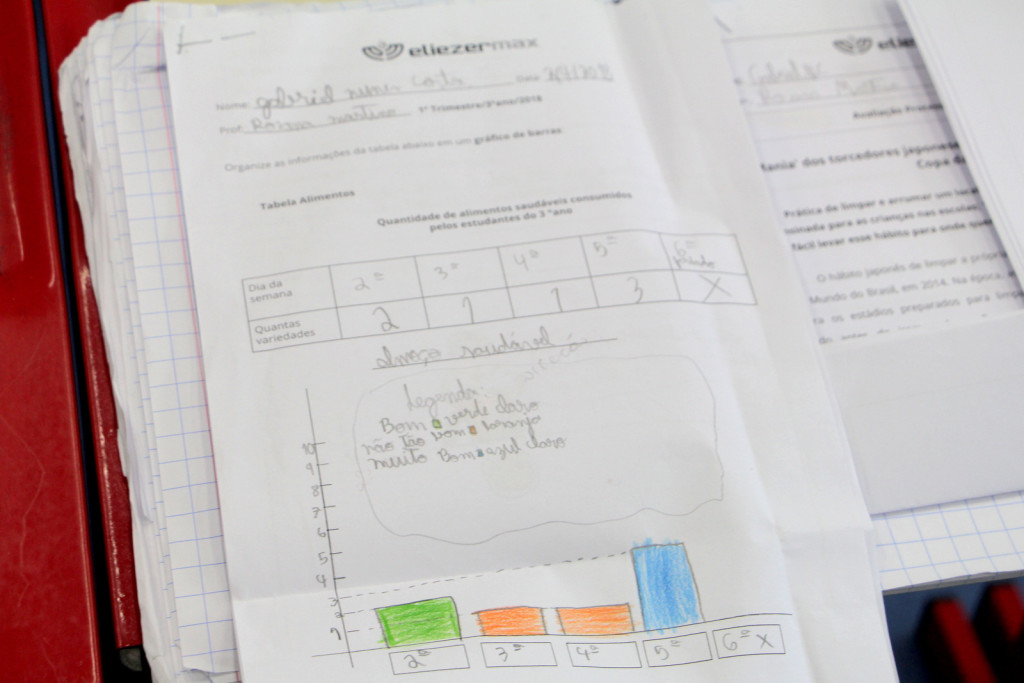 eliezermax
Nome: gabriel
Data:
Prof: 1º Trimestre/3ºano/2018
Organize as informações da tabela abaixo em um gráfico de barras
Tabela Alimentos
Quantidade de alimentos saudáveis consumidos
pelos estudantes do 3 ºano
Dia da semana 2º 3º 4º 5º 6º
Quantas variedades 2 1 1 3 X
almoço saudável
Legenda:
Bom verde claro
não tão bom laranja
muito Bom azul claro
10
9
8
7
6
5
4
3
2
1
2º 3º 4º 5º 6º X
eliezer
Avaliação
dos torcedores japoneses
Copa d
Prática de limpar e arrumar um
para as crianças nas escolas
fácil levar esse hábito para onde quer
O hábito japonês de limpar a própria
Mundo do Brasil, em 2014. Na época, a
os estádios preparados para limp